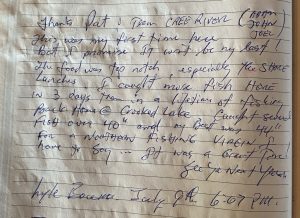 Thanks Pat & Team CREE RIVER (ADAM
JOHN
JOEL
This was my first time here
but I promise it won't be my last!
The food was top notch, especially the SHORE
Lunches. I caught more fish HERE
in 3 days than in a lifetime of fishing
Back Home @ Crooked Lake. Caught several
fish over 40" and my best was 44"
For a Northern Fishing Virgin I
have to say... It was a Great Time
See you Next Year
Lyle July 9th. 6:07 P.M.